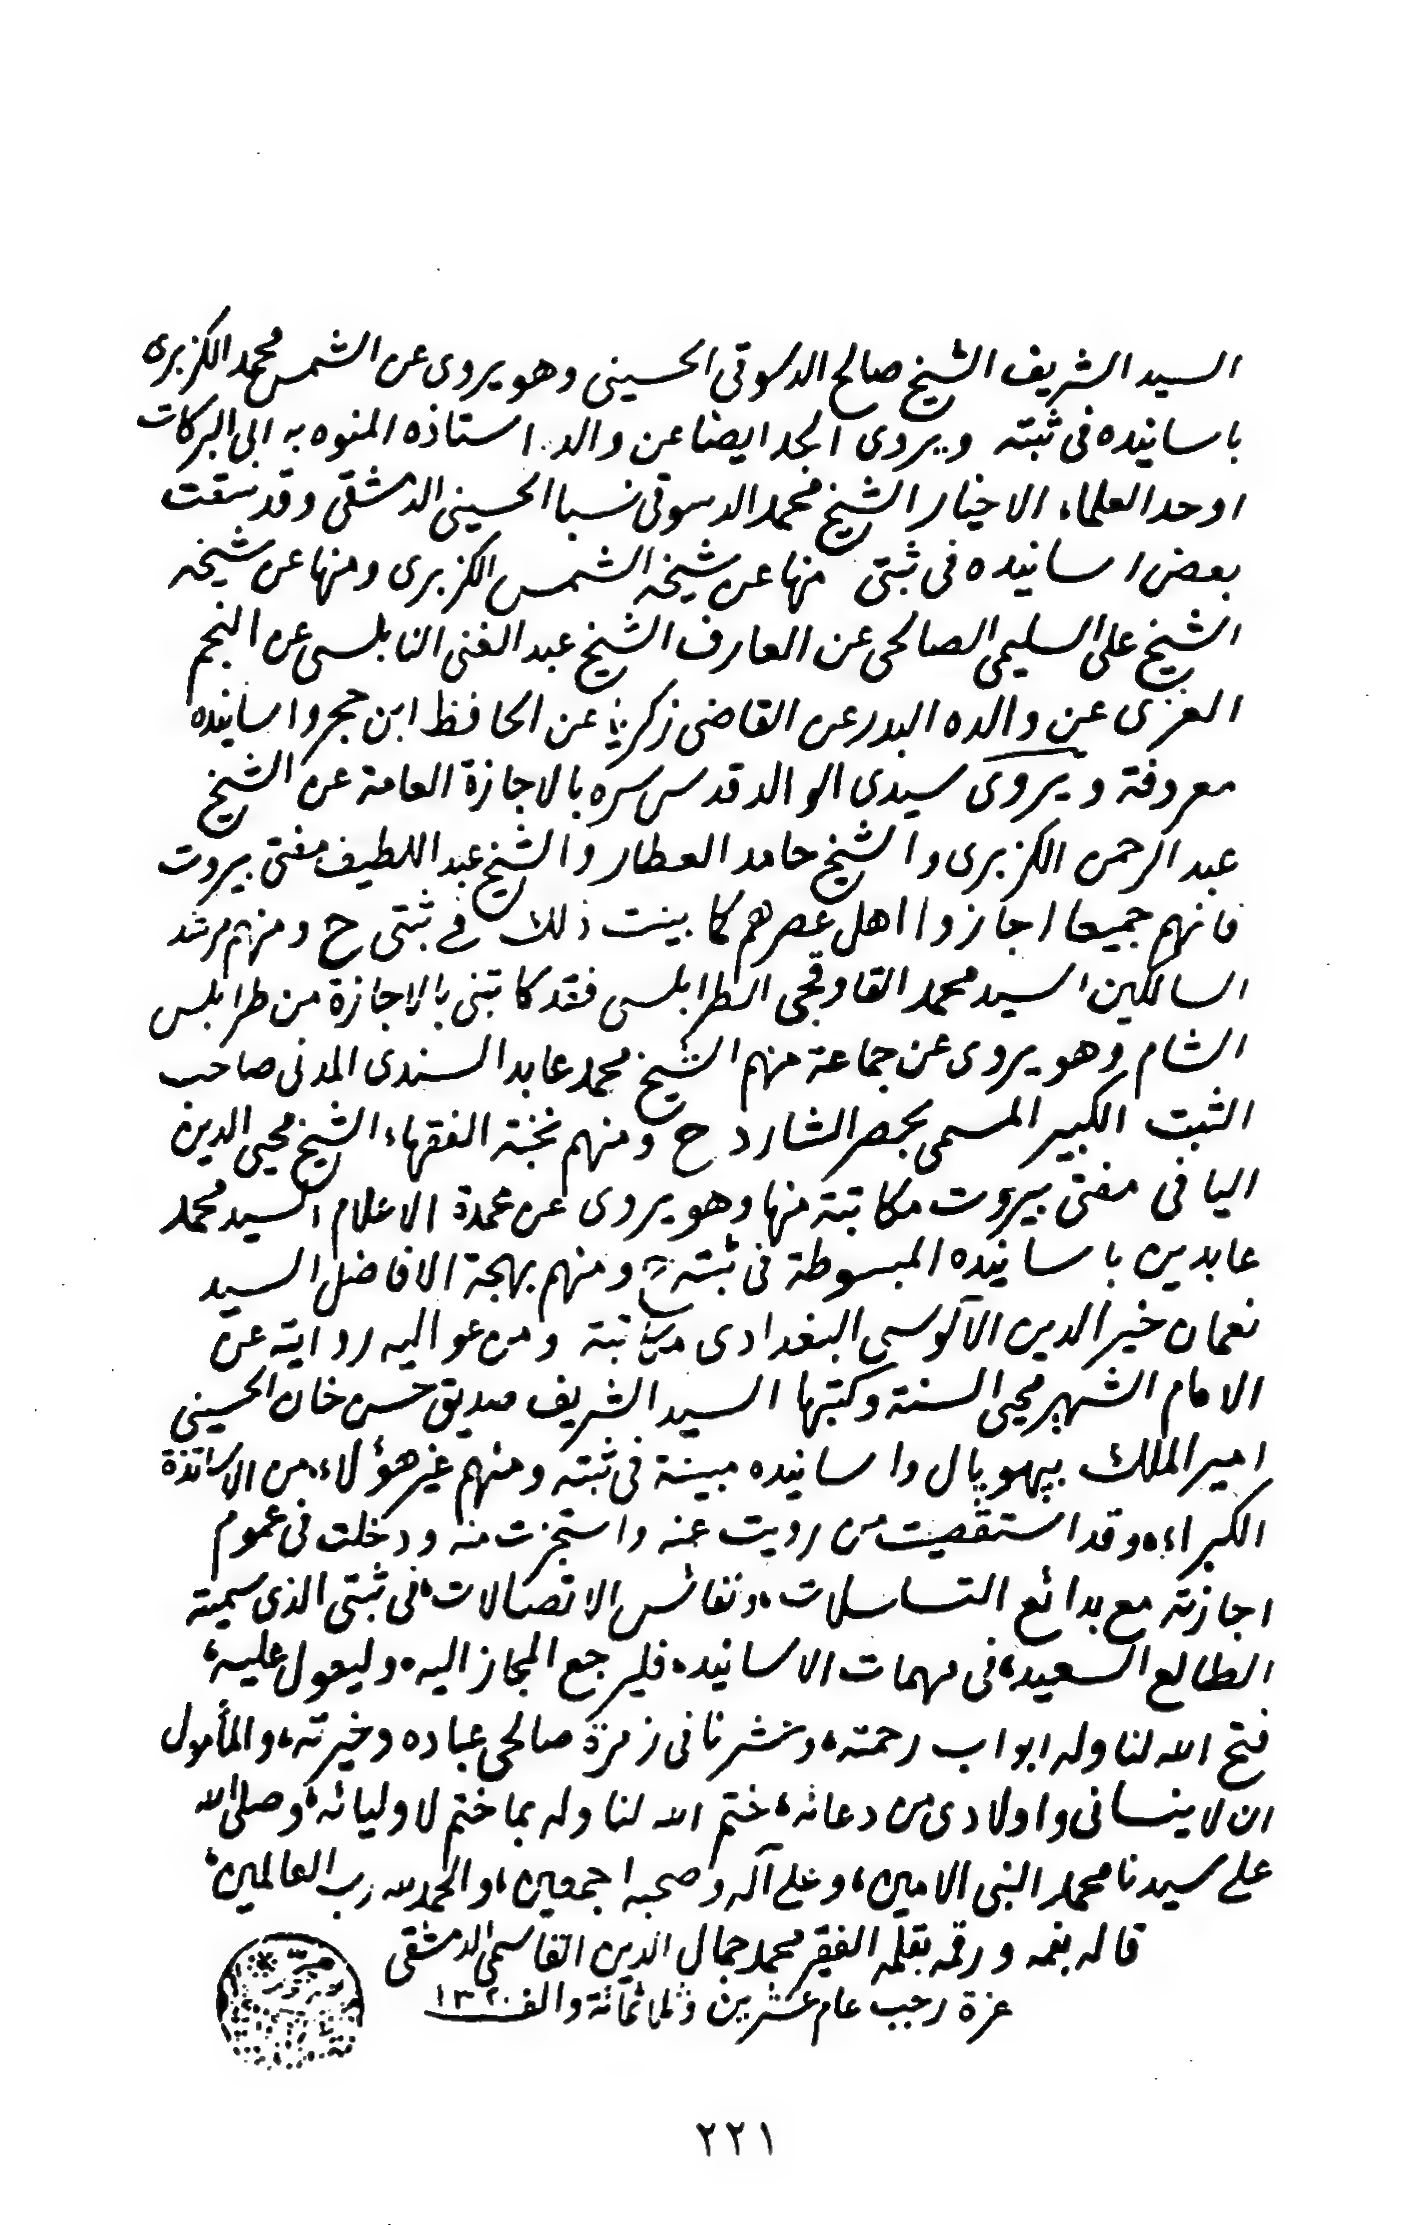 السيد الشريف الشيخ صالح الدسوقي الحسيني وهو يروى عن الشمس محمد الكزبرى
باسانيده في ثبته ويروى الجد ايضا عن والد استاذه المنوه به ابى البركات
اوحد العلماء الاخيار الشيخ محمد الدسوقي نسبا الحسيني الدمشقي وقد سقت
بعض اسانيده في ثبتى منها عن شيخه الشمس الكزبرى ومنها عن شيخه
الشيخ على السليمى الصالحى عن العارف الشيخ عبد الغنى النابلسى عن النجم
الغزى عن والده البدر عن القاضى زكريا عن الحافظ ابن حجر واسانيده
معروفة ويروى سيدى الوالد قدس سره بالاجازة العامة عن الشيخ
عبد الرحمن الكزبرى والشيخ حامد العطار والشيخ عبد اللطيف مفتى بيروت
فانهم جميعا اجازوا اهل عصرهم كما بينت ذلك في ثبتى ح ومنهم مرشد
السالكين السيد محمد القاوقجى الطرابلسى فقد كاتبنى بالاجازة من طرابلس
الشام وهو يروى عن جماعة منهم الشيخ محمد عابد السندى المدنى صاحب
الثبت الكبير المسمى بحصر الشارد ح ومنهم نخبة الفقهاء الشيخ محيى الدين
اليافى مفتى بيروت مكاتبة منها وهو يروى عن عمدة الاعلام السيد محمد
عابدين باسانيده المبسوطة في ثبته ح ومنهم بهجة الافاضل السيد
نعمان خير الدين الآلوسى البغدادى مكاتبة ومن عواليه روايته عن
الامام الشهير محيى السنة وكتبها السيد الشريف صديق حسن خان الحسينى
امير الملك ببهوپال واسانيده مبينة في ثبته ومنهم غير هؤلاء، من الاساتذة
الكبراء، وقد استقصيت من رويت عنه واستجزت منه ودخلت في عموم
اجازته مع بدائع التسلسلات، ونفائس الاتصالات، في ثبتى الذى سميته
الطالع السعيد، في مهمات الاسانيد، فليرجع المجاز اليه، وليعول عليه،
فتح الله لنا وله ابواب رحمته، وحشرنا في زمرة صالحى عباده وخيرته، والمأمول
ان لا ينسانى واولادى من دعائه، ختم الله لنا وله بما ختم لاوليائه، وصلى الله
على سيدنا محمد النبى الامين، وعلى آله وصحبه اجمعين، والحمد لله رب العالمين،
قاله بفمه ورقمه بقلمه الفقير محمد جمال الدين القاسمى الدمشقى
غرة رجب عام عشرين وثلاثمائة والف ١٣٢٠
٢٢١